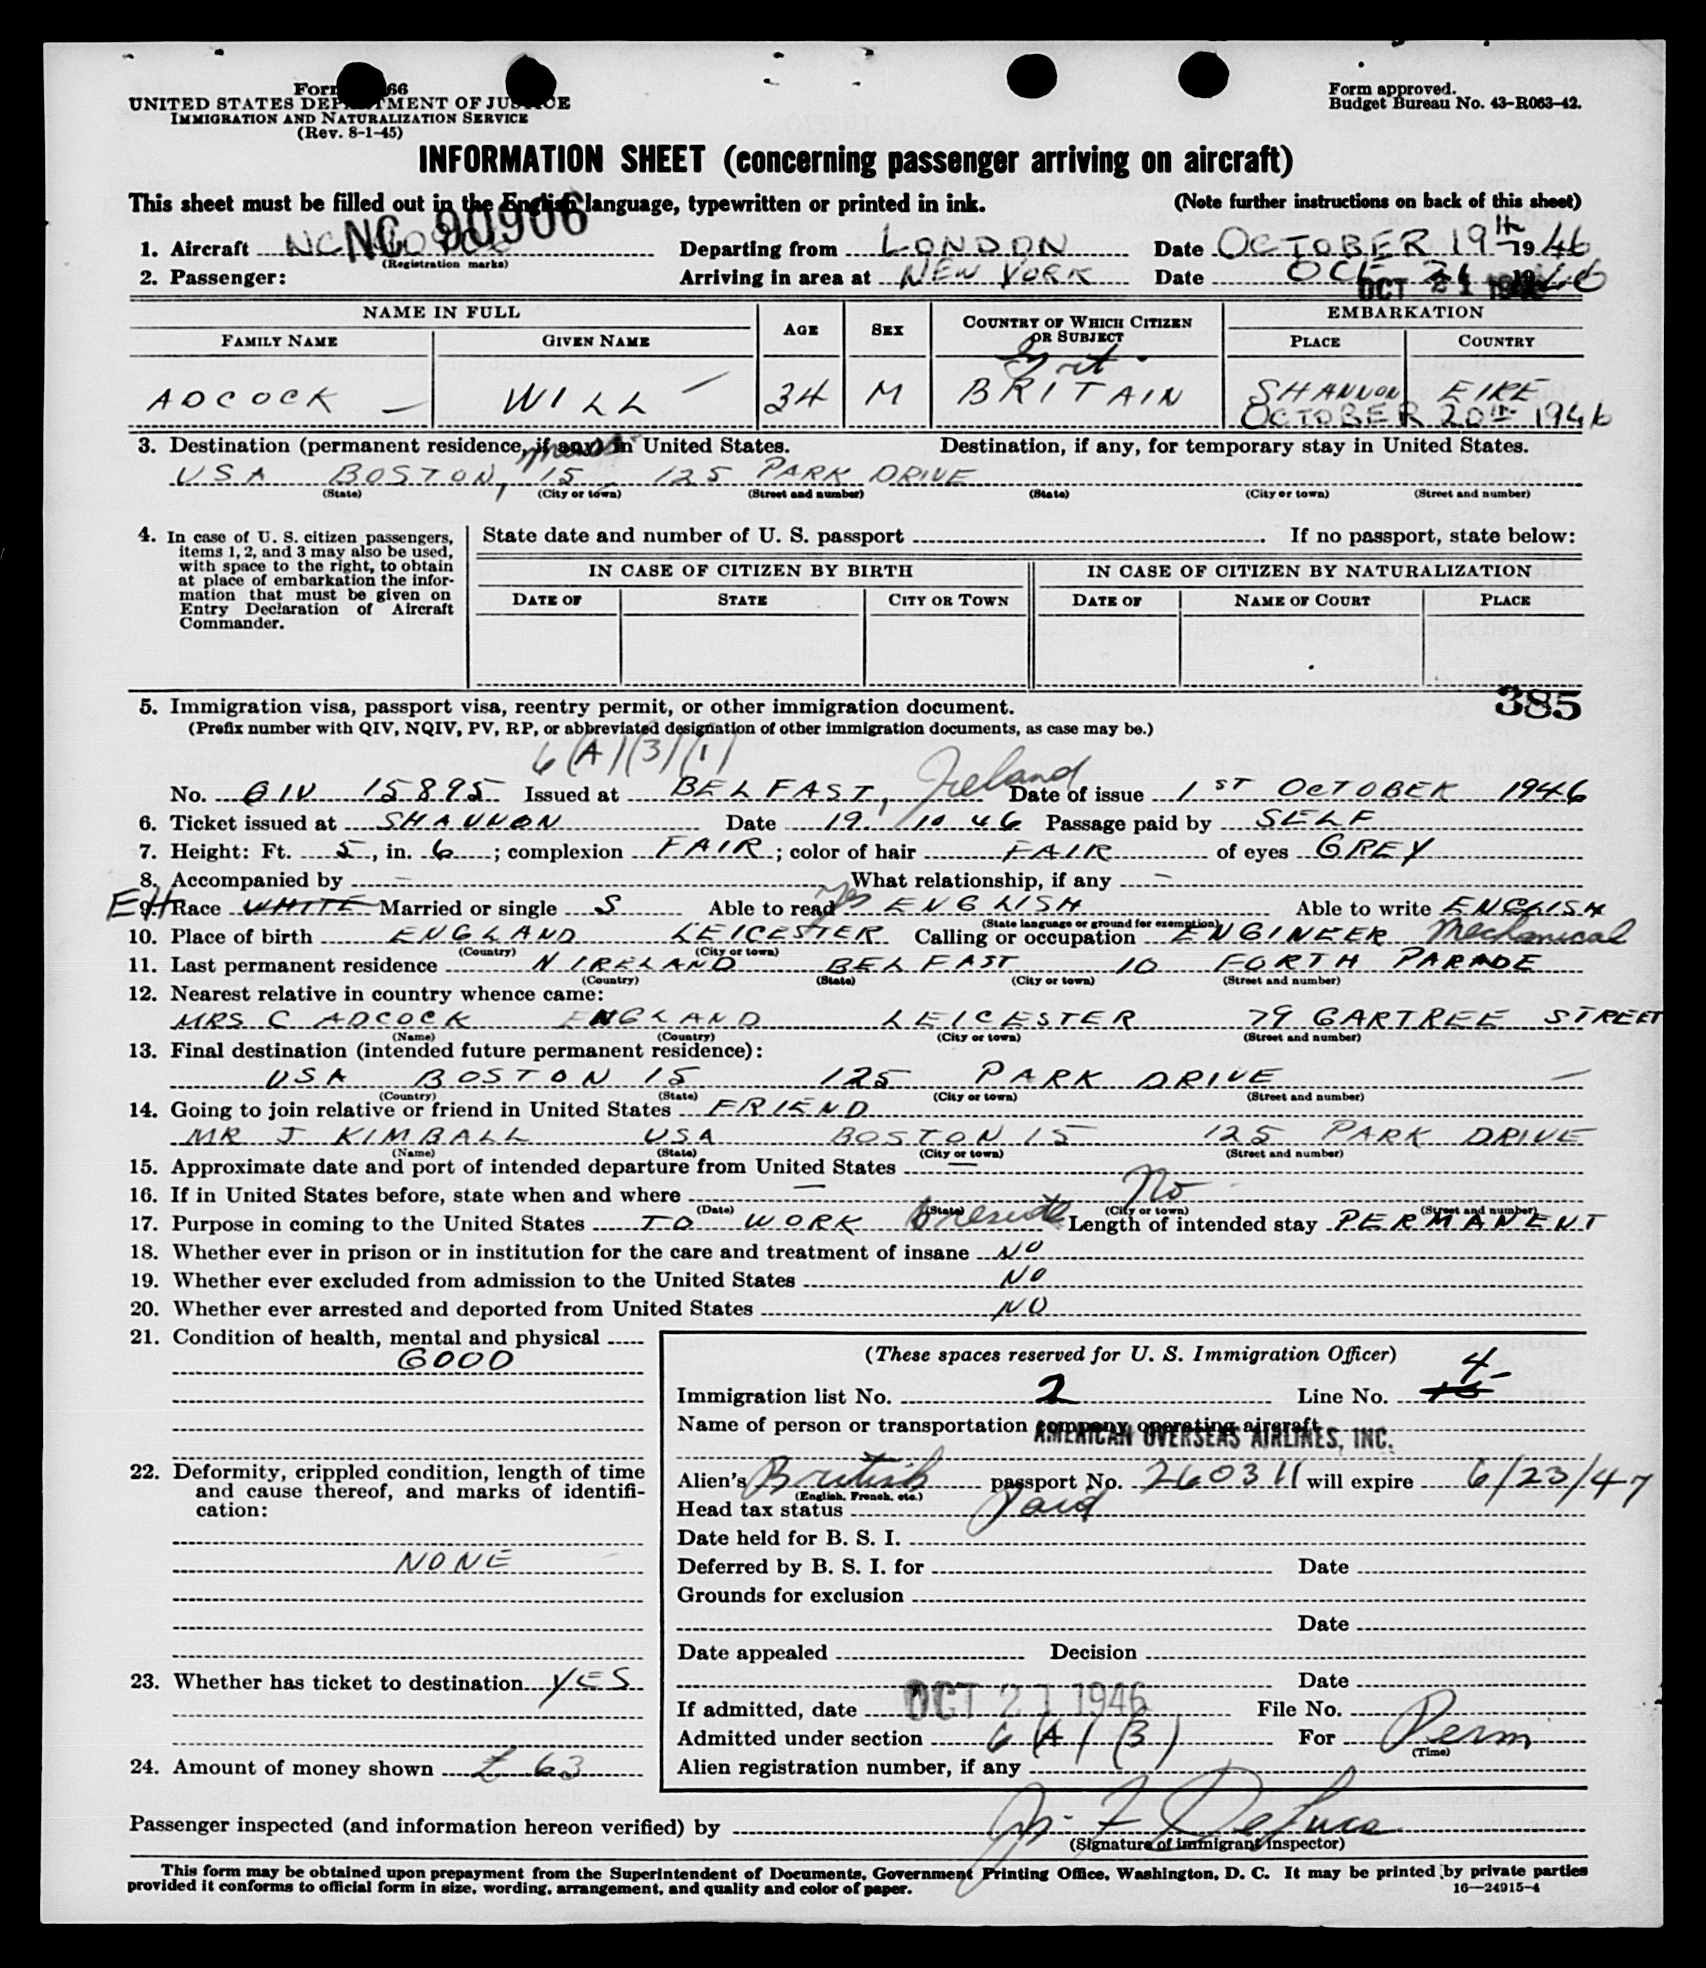 Form 66
UNITED STATES DEPARTMENT OF JUSTICE
IMMIGRATION AND NATURALIZATION SERVICE
(Rev. 8-1-45)
Form approved.
Budget Bureau No. 43-R063-42.
INFORMATION SHEET (concerning passenger arriving on aircraft)
This sheet must be filled out in the English language, typewritten or printed in ink. (Note further instructions on back of this sheet)
NC 90906
1. Aircraft NC 90906 Departing from LONDON Date OCTOBER 19th 1946
(Registration marks)
2. Passenger: Arriving in area at NEW YORK Date OCT 21 1946
OCT 21 1946
NAME IN FULL AGE SEX COUNTRY OF WHICH CITIZEN OR SUBJECT EMBARKATION
FAMILY NAME GIVEN NAME PLACE COUNTRY
Grt.
ADCOCK WILL 34 M BRITAIN SHANNON EIRE
OCTOBER 20th 1946
3. Destination (permanent residence, if any) in United States. Destination, if any, for temporary stay in United States.
Mass
USA BOSTON, 15 125 PARK DRIVE
(State) (City or town) (Street and number) (State) (City or town) (Street and number)
4. In case of U. S. citizen passengers, items 1, 2, and 3 may also be used, with space to the right, to obtain at place of embarkation the information that must be given on Entry Declaration of Aircraft Commander.
State date and number of U. S. passport . If no passport, state below:
IN CASE OF CITIZEN BY BIRTH IN CASE OF CITIZEN BY NATURALIZATION
DATE OF STATE CITY OR TOWN DATE OF NAME OF COURT PLACE
385
5. Immigration visa, passport visa, reentry permit, or other immigration document.
(Prefix number with QIV, NQIV, PV, RP, or abbreviated designation of other immigration documents, as case may be.)
6(A)(3)(1)
No. QIV 15895 Issued at BELFAST, Ireland Date of issue 1ST OCTOBER 1946
6. Ticket issued at SHANNON Date 19. 10 46 Passage paid by SELF
7. Height: Ft. 5, in. 6; complexion FAIR; color of hair FAIR of eyes GREY
8. Accompanied by – What relationship, if any –
EH 9. Race WHITE Married or single S Able to read yes ENGLISH Able to write ENGLISH
(State language or ground for exemption)
10. Place of birth ENGLAND LEICESTER Calling or occupation ENGINEER Mechanical
(Country) (City or town)
11. Last permanent residence N IRELAND BELFAST 10 FORTH PARADE
(Country) (State) (City or town) (Street and number)
12. Nearest relative in country whence came:
MRS C ADCOCK ENGLAND LEICESTER 79 GARTREE STREET
(Name) (Country) (City or town) (Street and number)
13. Final destination (intended future permanent residence):
USA BOSTON 15 125 PARK DRIVE –
(Country) (State) (City or town) (Street and number)
14. Going to join relative or friend in United States FRIEND
MR J KIMBALL USA BOSTON 15 125 PARK DRIVE
(Name) (State) (City or town) (Street and number)
15. Approximate date and port of intended departure from United States —
16. If in United States before, state when and where — No
(Date) (State) (City or town) (Street and number)
17. Purpose in coming to the United States TO WORK & reside Length of intended stay PERMANENT
18. Whether ever in prison or in institution for the care and treatment of insane NO
19. Whether ever excluded from admission to the United States NO
20. Whether ever arrested and deported from United States NO
21. Condition of health, mental and physical
GOOD
22. Deformity, crippled condition, length of time and cause thereof, and marks of identification:
NONE
23. Whether has ticket to destination YES
24. Amount of money shown £ 63
(These spaces reserved for U. S. Immigration Officer)
Immigration list No. 2 Line No. 4
Name of person or transportation company operating aircraft
AMERICAN OVERSEAS AIRLINES, INC.
Alien's British passport No. 260311 will expire 6/23/47
(English, French, etc.)
Head tax status Paid
Date held for B. S. I.
Deferred by B. S. I. for Date
Grounds for exclusion
Date
Date appealed Decision
Date
If admitted, date OCT 21 1946 File No.
Admitted under section 6 (A) (3) For Perm
(Time)
Alien registration number, if any
Passenger inspected (and information hereon verified) by
(Signature of immigrant inspector)
This form may be obtained upon prepayment from the Superintendent of Documents, Government Printing Office, Washington, D. C. It may be printed by private parties
provided it conforms to official form in size, wording, arrangement, and quality and color of paper. 16—24915-4